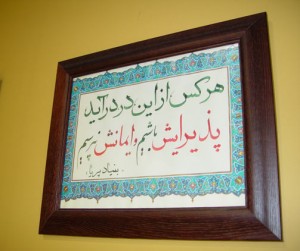 هر کس از این در درآید
پذیرایش باشیم و ایمانش نپرسیم
بنیاد